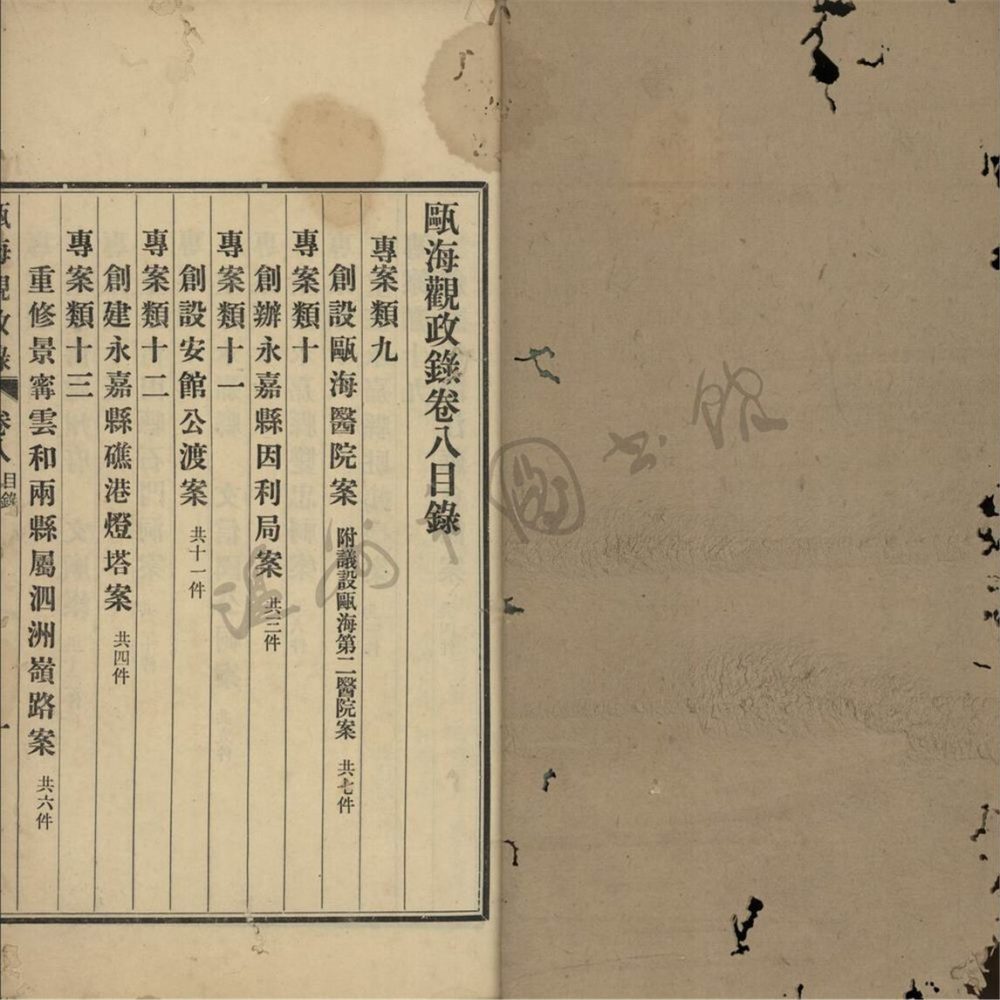 甌海觀政錄卷八目錄
專案類九
創設甌海醫院案 附議設甌海第二醫院案 共七件
專案類十
創辦永嘉縣因利局案 共三件
專案類十一
創設安館公渡案 共十一件
專案類十二
創建永嘉縣礁港燈塔案 共四件
專案類十三
重修景寗雲和兩縣屬泗洲嶺路案 共六件
甌海觀政錄 卷八 目錄 一
温州市圖书館